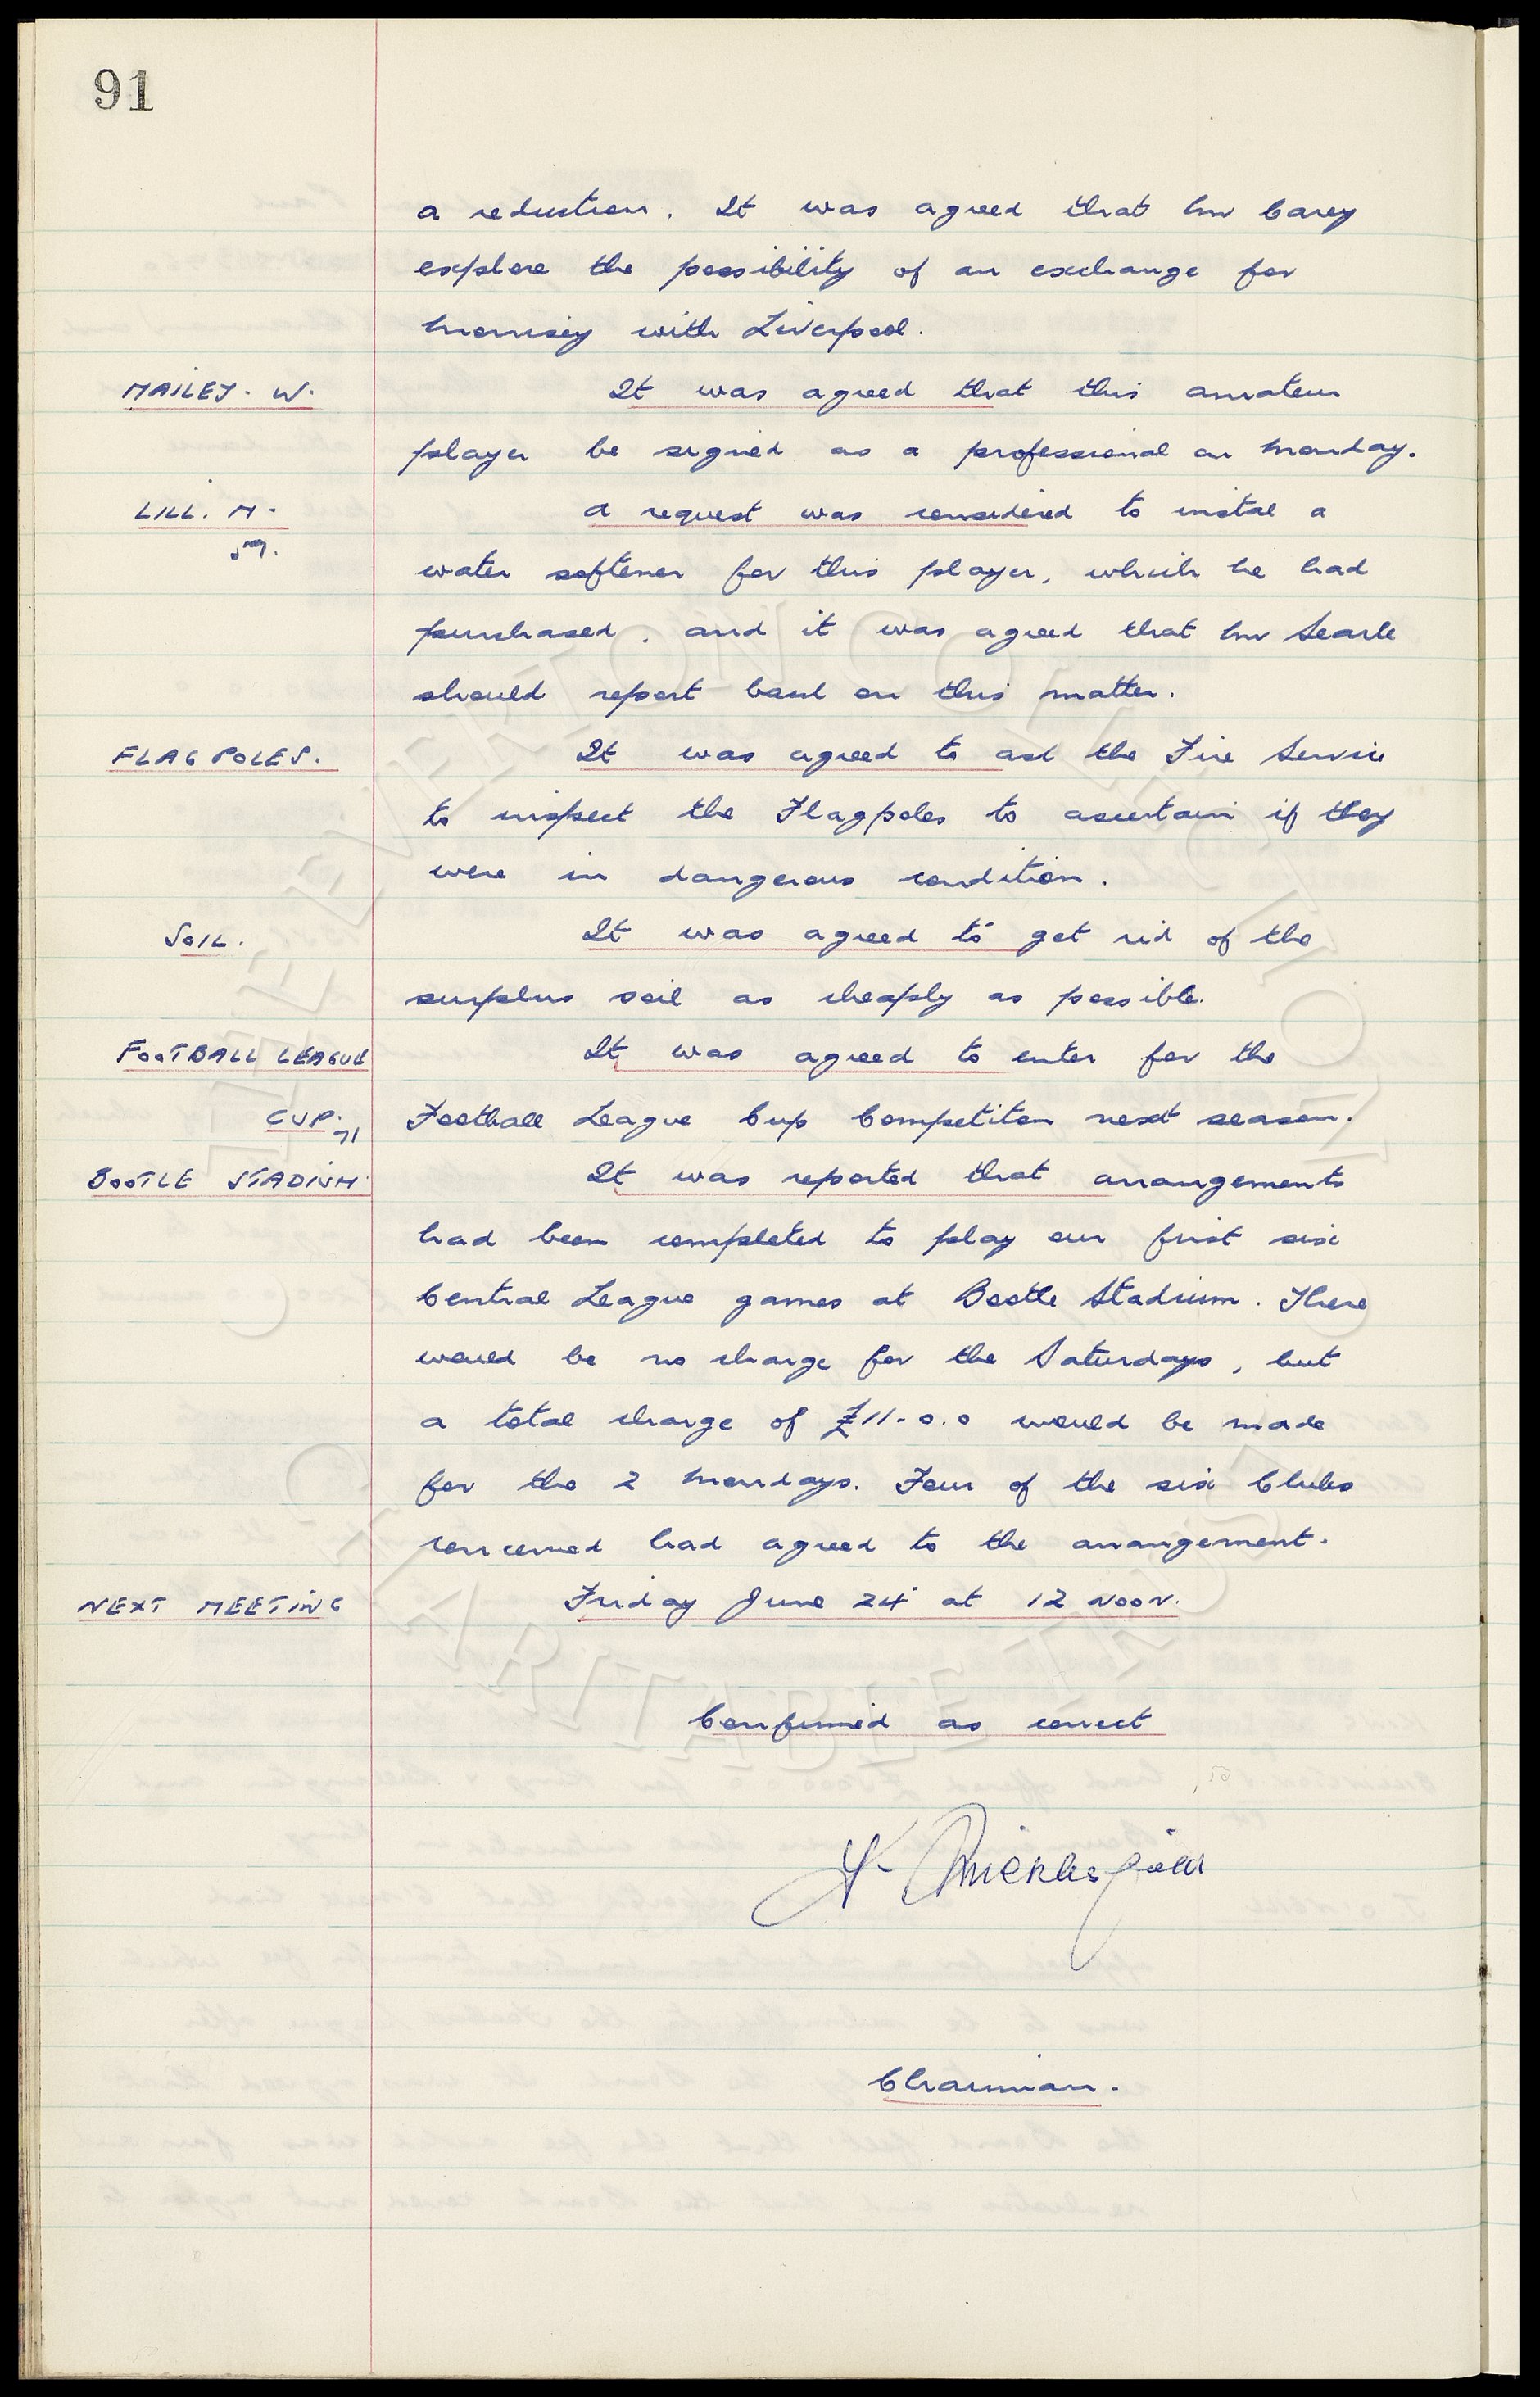 91
a reduction. It was agreed that Mr Carey
explore the possibility of an exchange for
Morrisey with Liverpool.
MAILEY. W. It was agreed that this amateur
player be signed as a professional on Monday.
LILL. M. A request was considered to instal a
water softener for this player, which he had
purchased, and it was agreed that Mr Searle
should report back on this matter.
FLAG POLES. It was agreed to ask the Fire Service
to inspect the Flagpoles to ascertain if they
were in dangerous condition.
SOIL. It was agreed to get rid of the
surplus soil as cheaply as possible.
FOOTBALL LEAGUE It was agreed to enter for the
CUP. 71 Football League Cup Competiton next season.
BOOTLE STADIUM. It was reported that arrangements
had been completed to play our first six
Central League games at Bootle Stadium. There
would be no charge for the Saturdays, but
a total charge of £11-0.0 would be made
for the 2 Mondays. Four of the six Clubs
concerned had agreed to the arrangement.
NEXT MEETING Friday June 24 at 12 NOON.
Confirmed as correct
Micklesfield
Chairman.
THE EVERTON COLLECTION
CHARITABLE TRUST